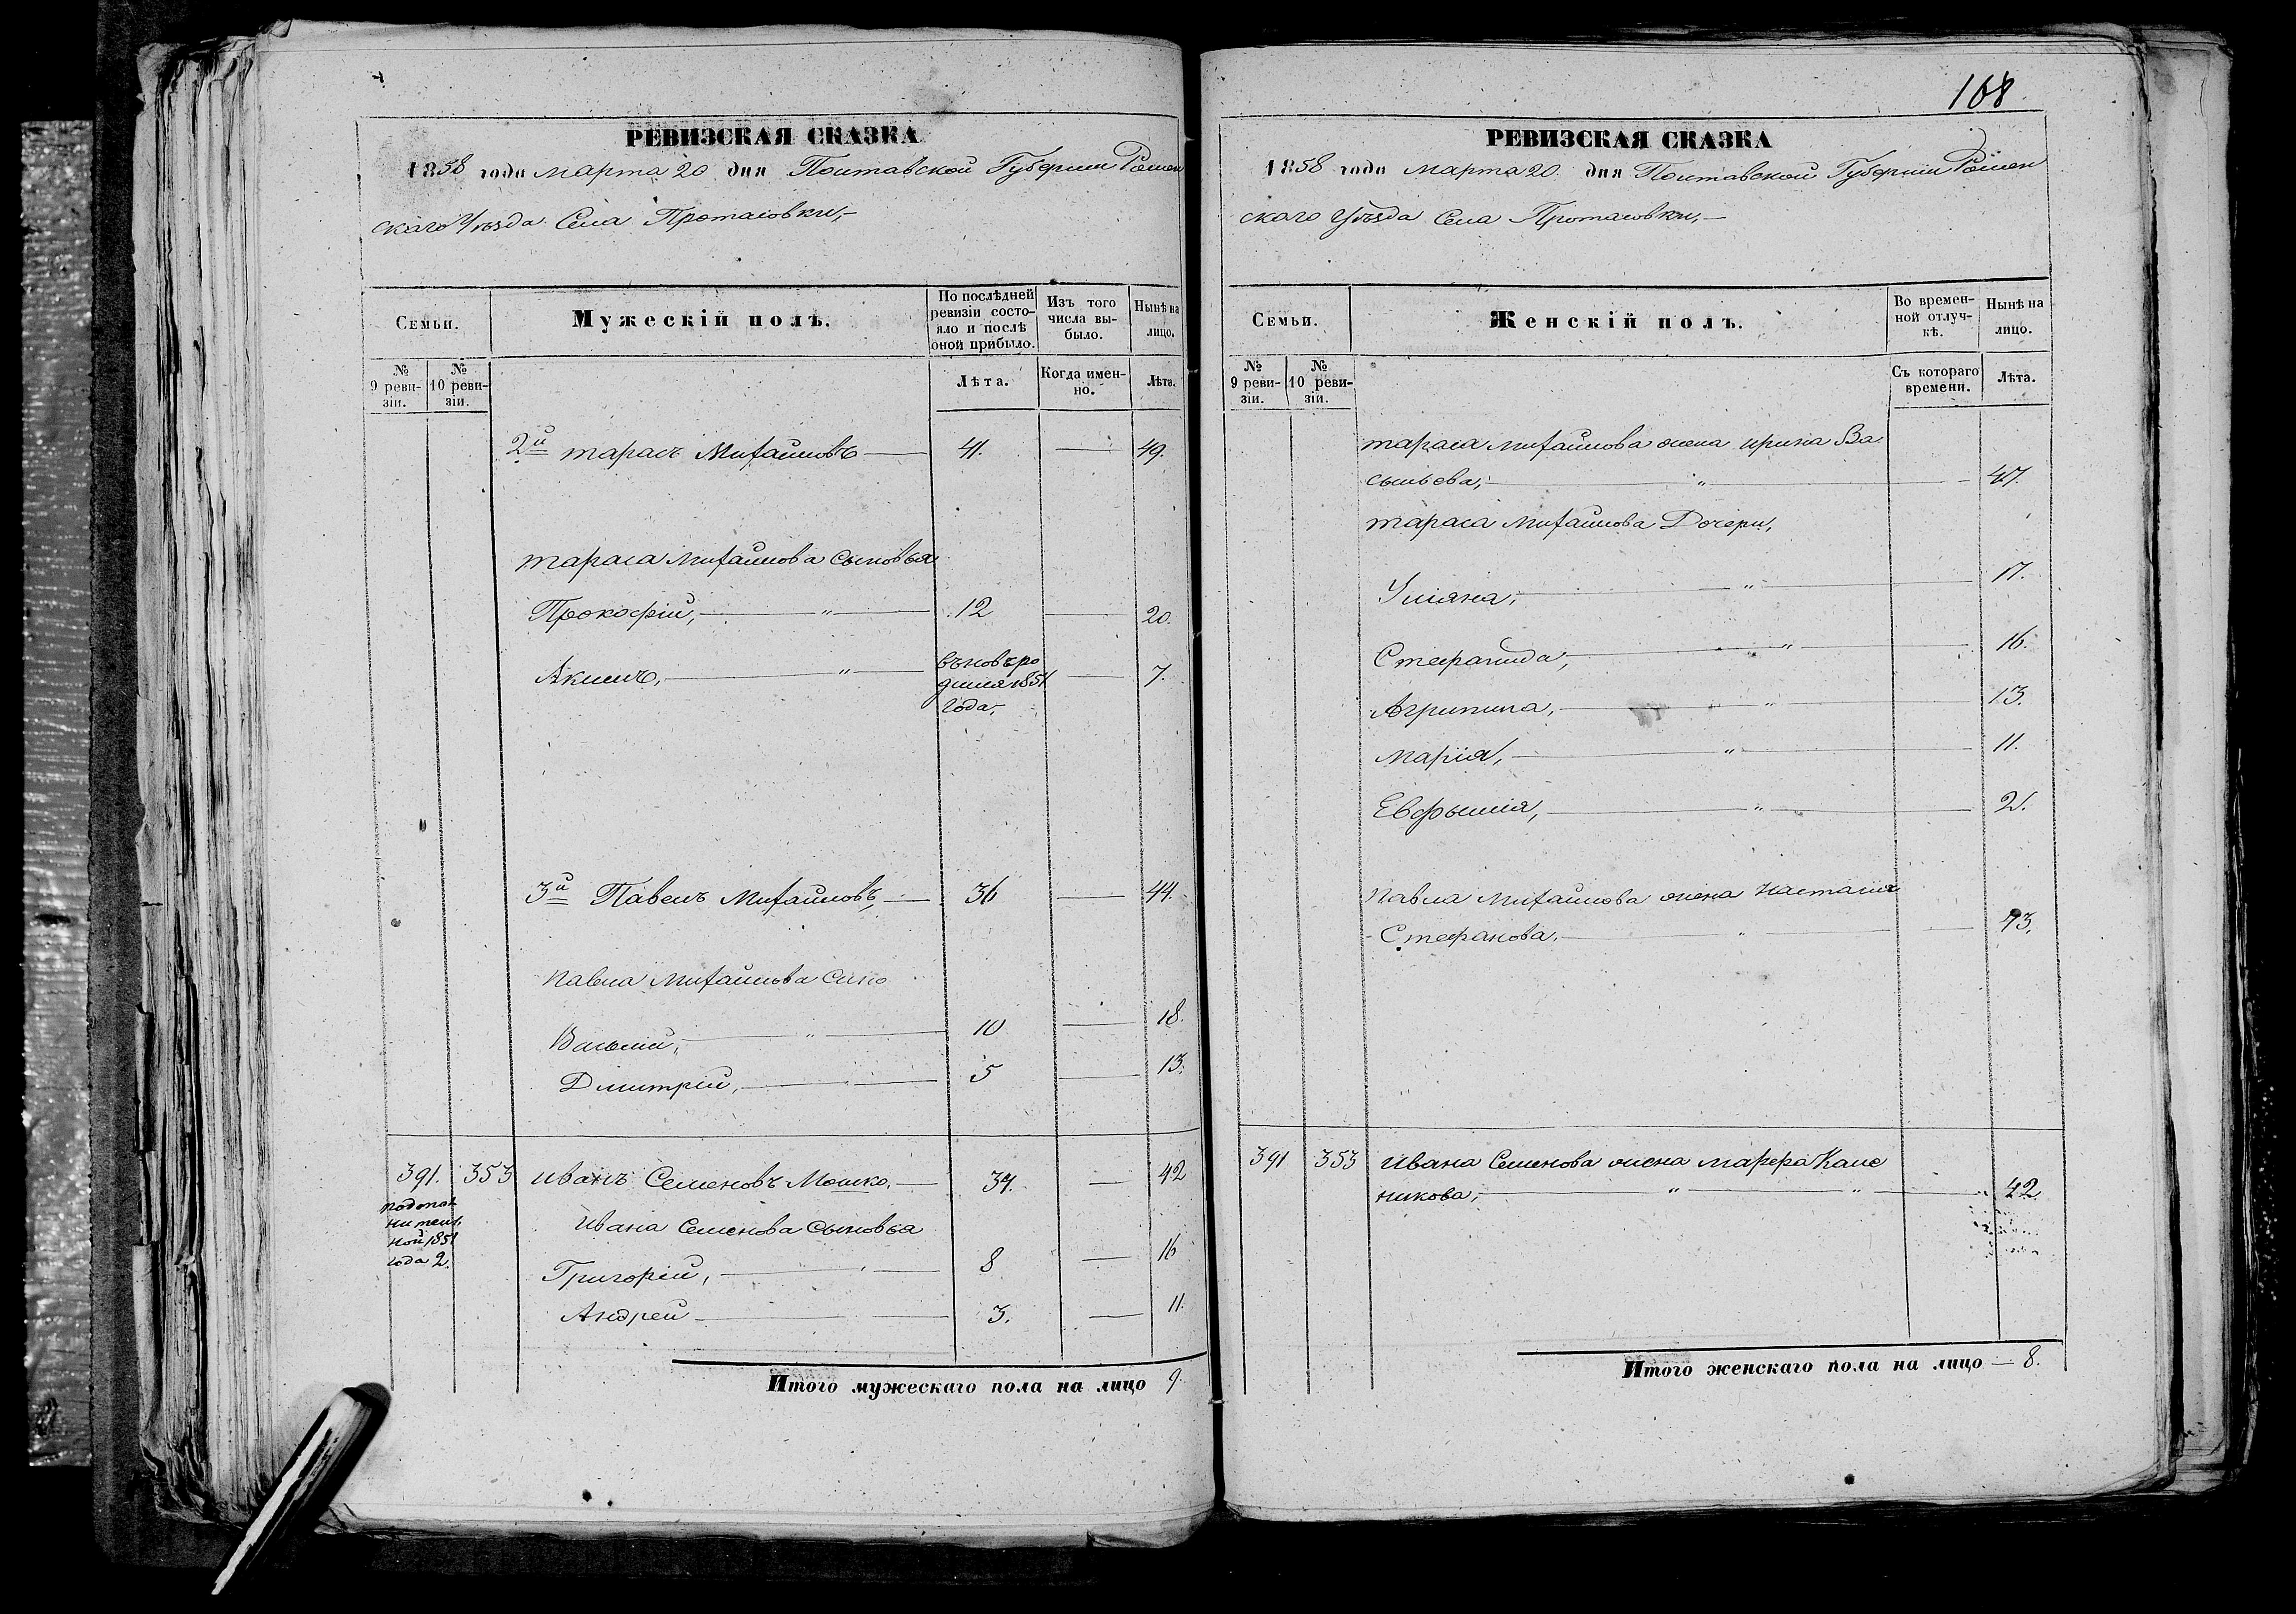 РЕВИЗСКАЯ СКАЗКА
1858 года марта 20 дня Полтавской Губерніи Ромен
скаго Уѣзда Села Протасовки,
Семьи.
Мужескій полъ.
По послѣдней
ревизіи состо-
яло и послѣ
оной прибыло.
Изъ того
числа вы-
было.
Нынѣ на
лицо.
№
9 реви-
зіи.
№
10 реви-
зіи.
Лѣта.
Когда имен-
но.
Лѣта.
2й тарасъ Михайловъ — 41. — 49.
тараса михайлова сыновья
Прокофій, — " — 12 — 20.
Акимъ, — " — вьновь ро — 7.
дился 1851
года,
3й Павелъ Михайловъ, — 36 — 44.
павла михайлова сыно
Василій, — " — 10 — 18.
Дмитрій, — 5 — 13.
391. 353 иванъ Семеновъ Мошко. — 34. — 42
ной 1851
года 2.
ивана Семенова сыновья
Григорій, — 8 — 16
Андрей — 3. — 11.
Итого мужескаго пола на лицо 9.
168
РЕВИЗСКАЯ СКАЗКА
1858 года марта 20. дня Полтавской Губерніи Ромен
скаго Уѣзда Села Протасовки, —
Семьи.
Женскій полъ.
Во времен-
ной отлуч-
кѣ.
Нынѣ на
лицо.
№
9 реви-
зіи.
№
10 реви-
зіи.
Съ котораго
времени.
Лѣта.
тараса михайлова жена ирина Ва
сильева, — " — 47.
тараса михайлова Дочери,
Уліяна, — " — 17.
Стефанида, — " — 16.
Агрипина, — " — 13.
марія, — " — 11.
Евфимія, — " — 2.
павла михайлова жена настасия
Стефанова. — " — 43.
391 353 ивана Семенова жена марфа Кале
никова, — " — " — 42
Итого женскаго пола на лицо — 8.